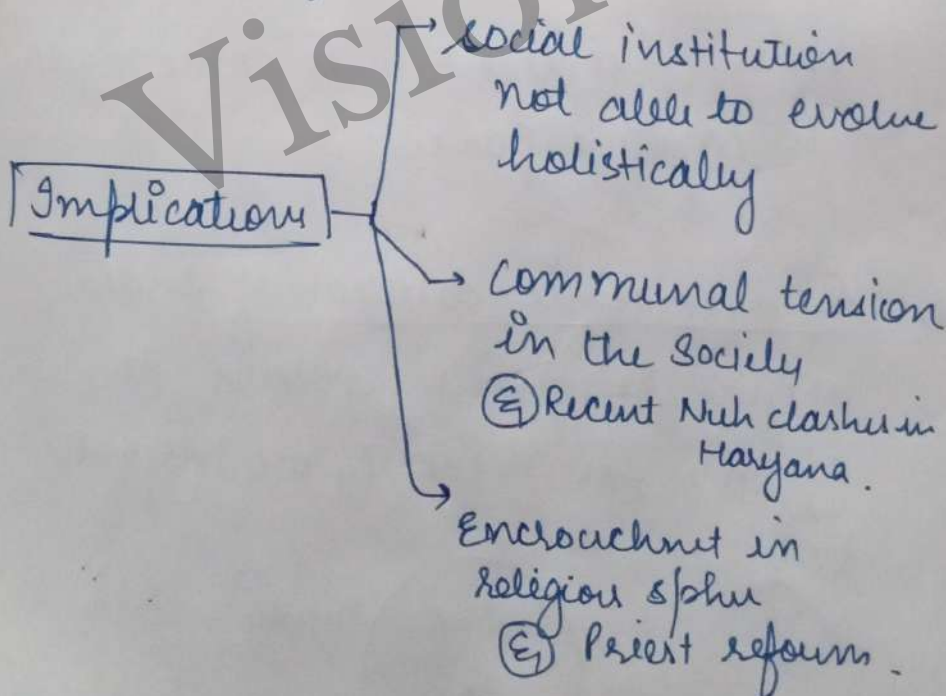 Vision
social institution
not able to evolve
holistically
Implications
Communal tension
in the Society
Eg Recent Nuh clashes in
Haryana.
Encroachmt in
religious sphre
Eg Priest reform.